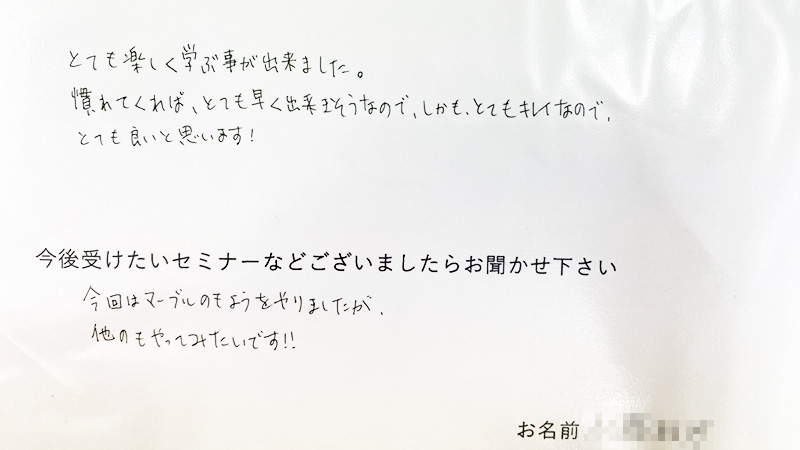 とても楽しく学ぶ事が出来ました。
慣れてくれば、とても早く出来そうなので、しかも、とてもキレイなので、
とても良いと思います!
今後受けたいセミナーなどございましたらお聞かせ下さい
今回はマーブルのもようをやりましたが、
他のもやってみたいです!!
お名前